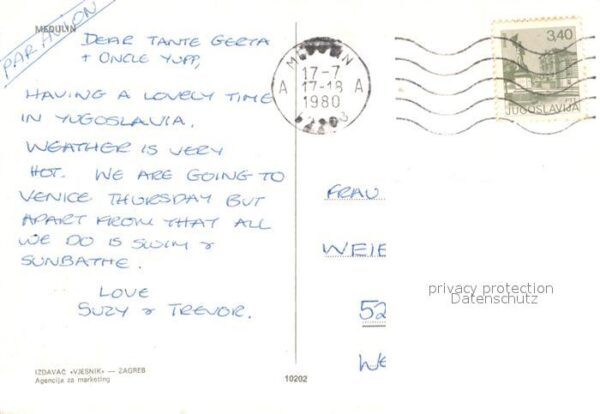 MEDULIN
PAR AVION
DEAR TANTE GERTA
+ ONCLE YUPP,
HAVING A LOVELY TIME
IN YUGOSLAVIA.
WEATHER IS VERY
HOT. WE ARE GOING TO
VENICE THURSDAY BUT
APART FROM THAT ALL
WE DO IS SWIM &
SUNBATHE.
LOVE
SUZY & TREVOR.
IZDAVAČ «VJESNIK» — ZAGREB
Agencija za marketing
10202
A 17-7 A
17-18
1980
3,40
JUGOSLAVIJA
FRAU
WEIE
52
WE
privacy protection
Datenschutz